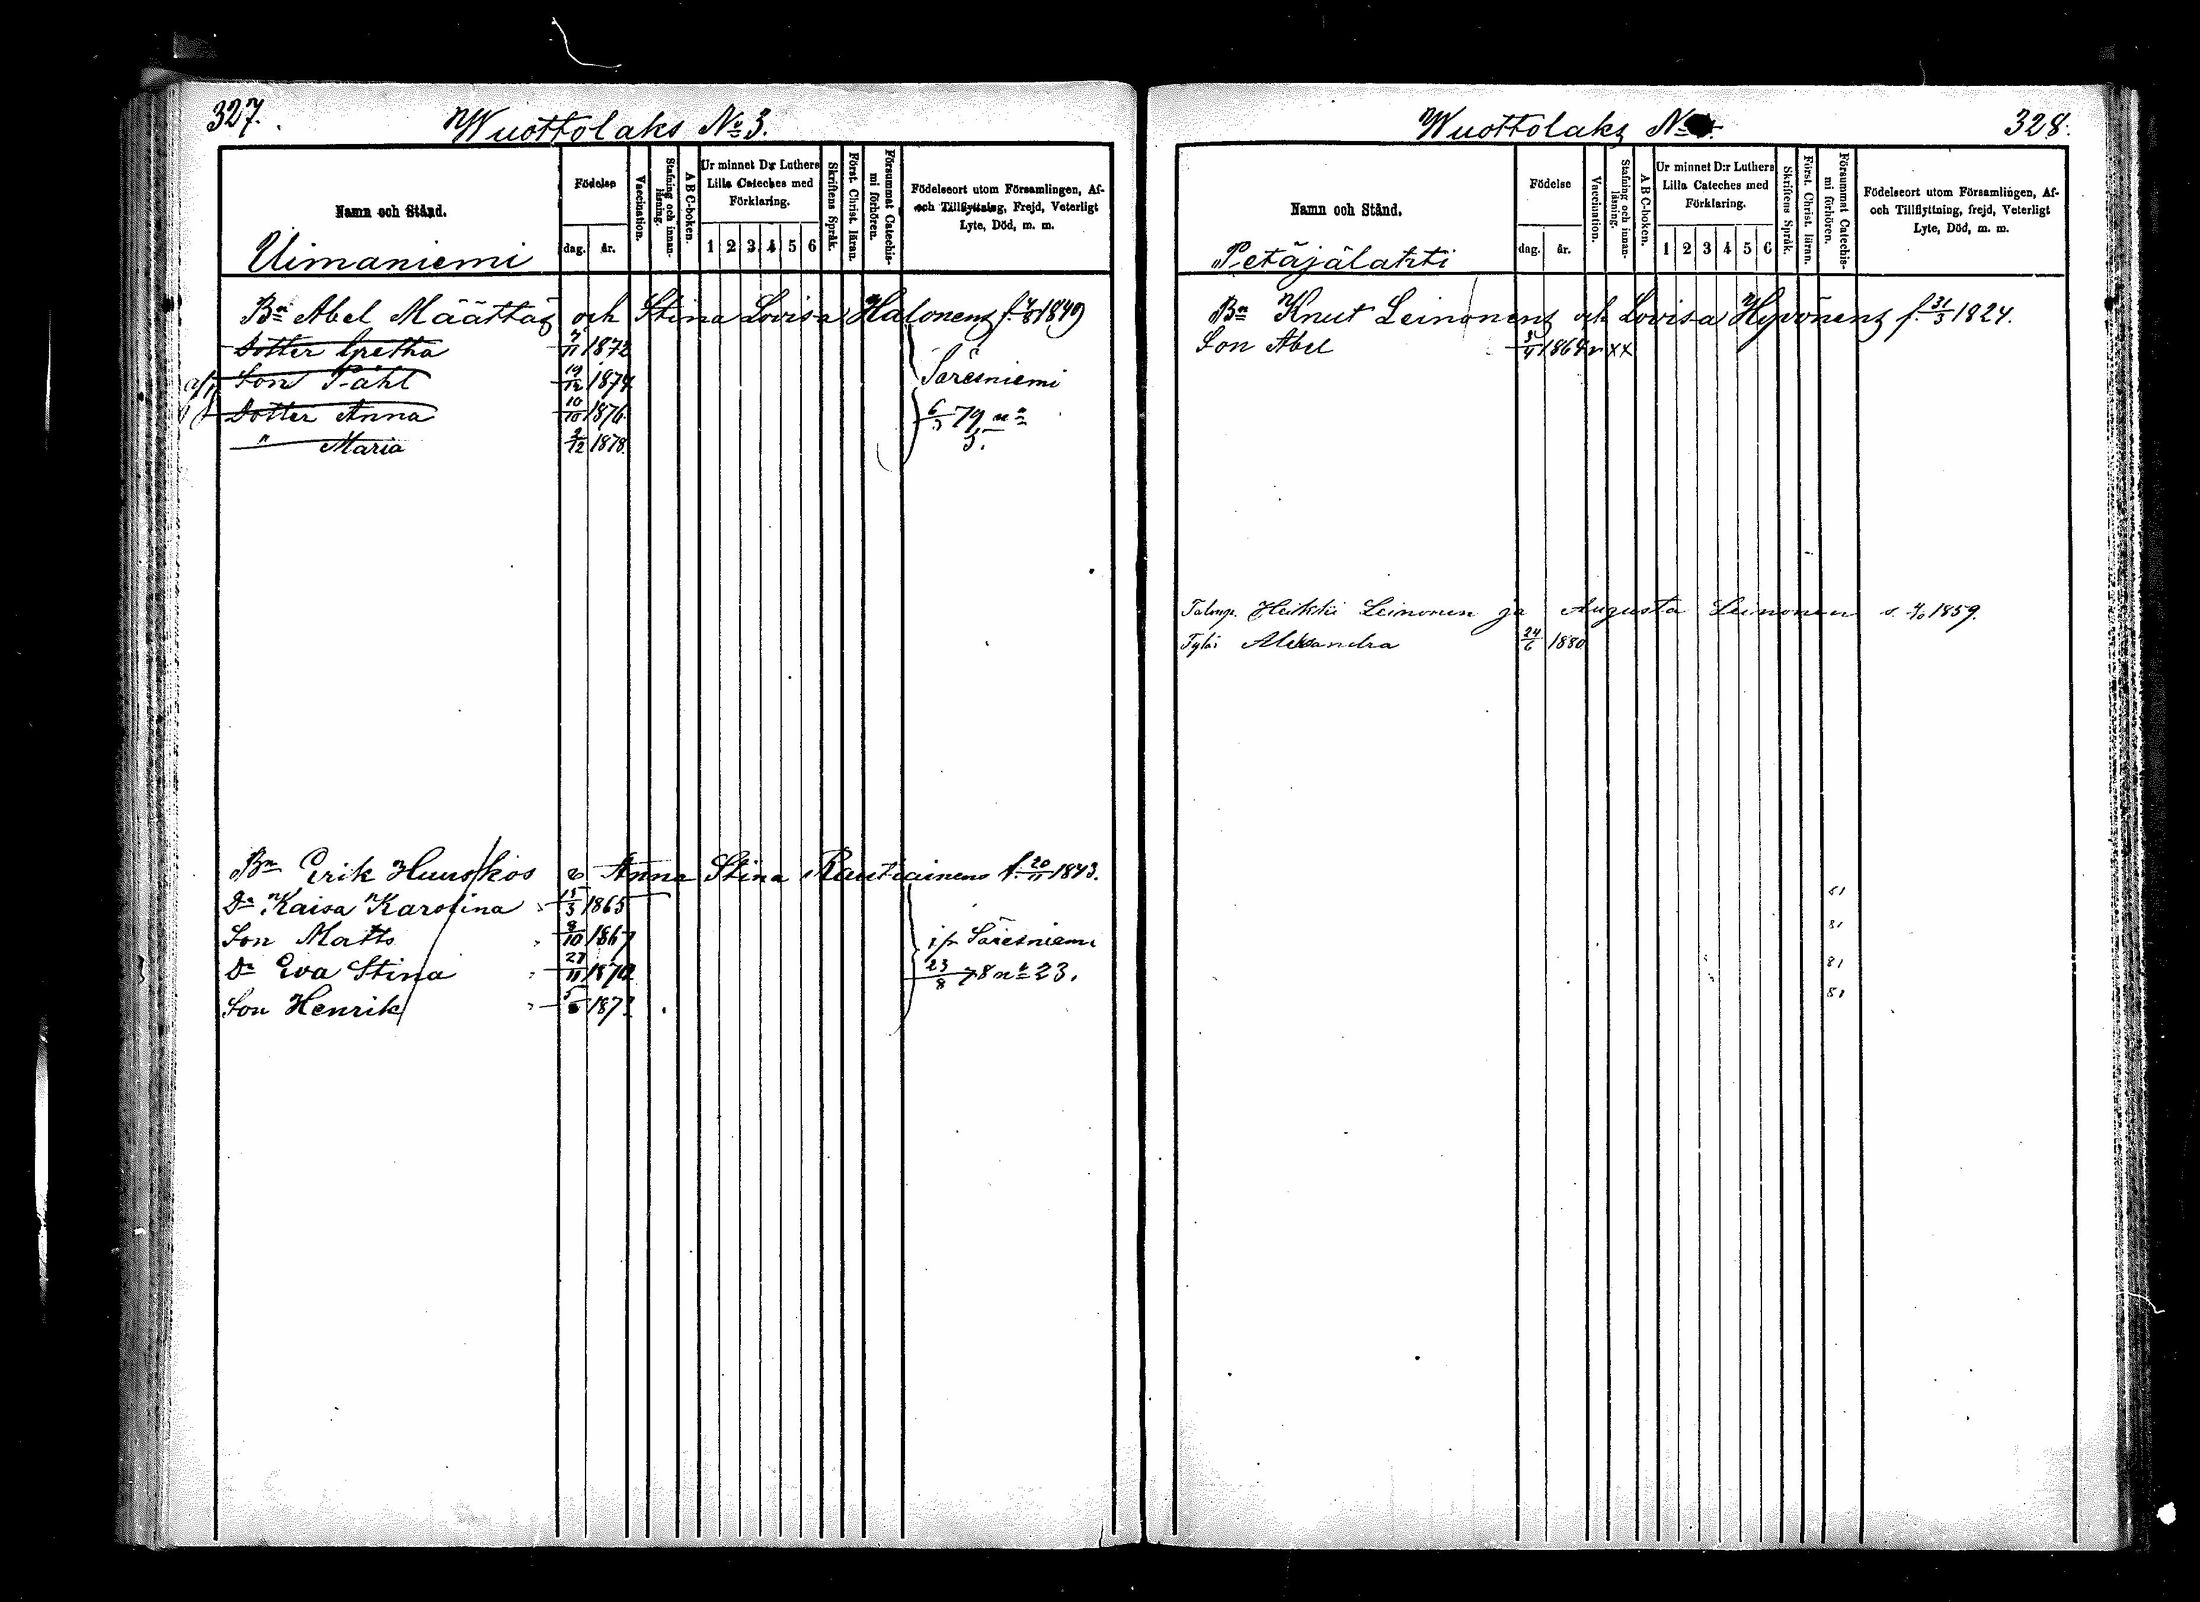 327.
Wuottolaks No 3.
Namn och Stånd.
Födelse
dag. år.
Vaccination.
Stafning och innanläsning.
A B C-boken.
Ur minnet D:r Luthers Lilla Cateches med Förklaring.
1 2 3 4 5 6
Skriftens Språk.
Först. Christ. läran.
Försummat Catechismi förhören.
Födelseort utom Församlingen, Af-
och Tillflyttning, Frejd, Veterligt
Lyte, Död, m. m.
Uimaniemi
Bn Abel Määttäs och Stina Lovisa Halonens f. 1849
Dotter Gretha 7/11 1872
Son Påhl 19/12 1874 Säresniemi
Dotter Anna 10/10 1876 79 no
" Maria 2/12 1878 3.
Bn Erik Huuskos o Anna Stina Rautiainens f. 20/11 1843.
Dr Kaisa Karolina 15/3 1865
Son Matts 9/10 1867 i/fr Säresniemi
Dr Eva Stina 27/11 1870 23/8 78 no 23.
Son Henrik 187
Wuottolaks No
328.
Namn och Stånd.
Födelse
dag. år.
Vaccination.
Stafning och innanläsning.
A B C-boken.
Ur minnet D:r Luthers Lilla Cateches med Förklaring.
1 2 3 4 5 6
Skriftens Språk.
Först. Christ. läran.
Försummat Catechismi förhören.
Födelseort utom Församlingen, Af-
och Tillflyttning, frejd, Veterligt
Lyte, Död, m. m.
Petäjälahti
Bn Knut Leinonens och Lovisa Hyvönens f. 31/3 1824.
Son Abel 5/4 1864 v xx
Talonp. Heikki Leinonen ja Augusta Leinonen s. 1859.
Tytär Aleksandra 24/6 1880
81
81
81
81